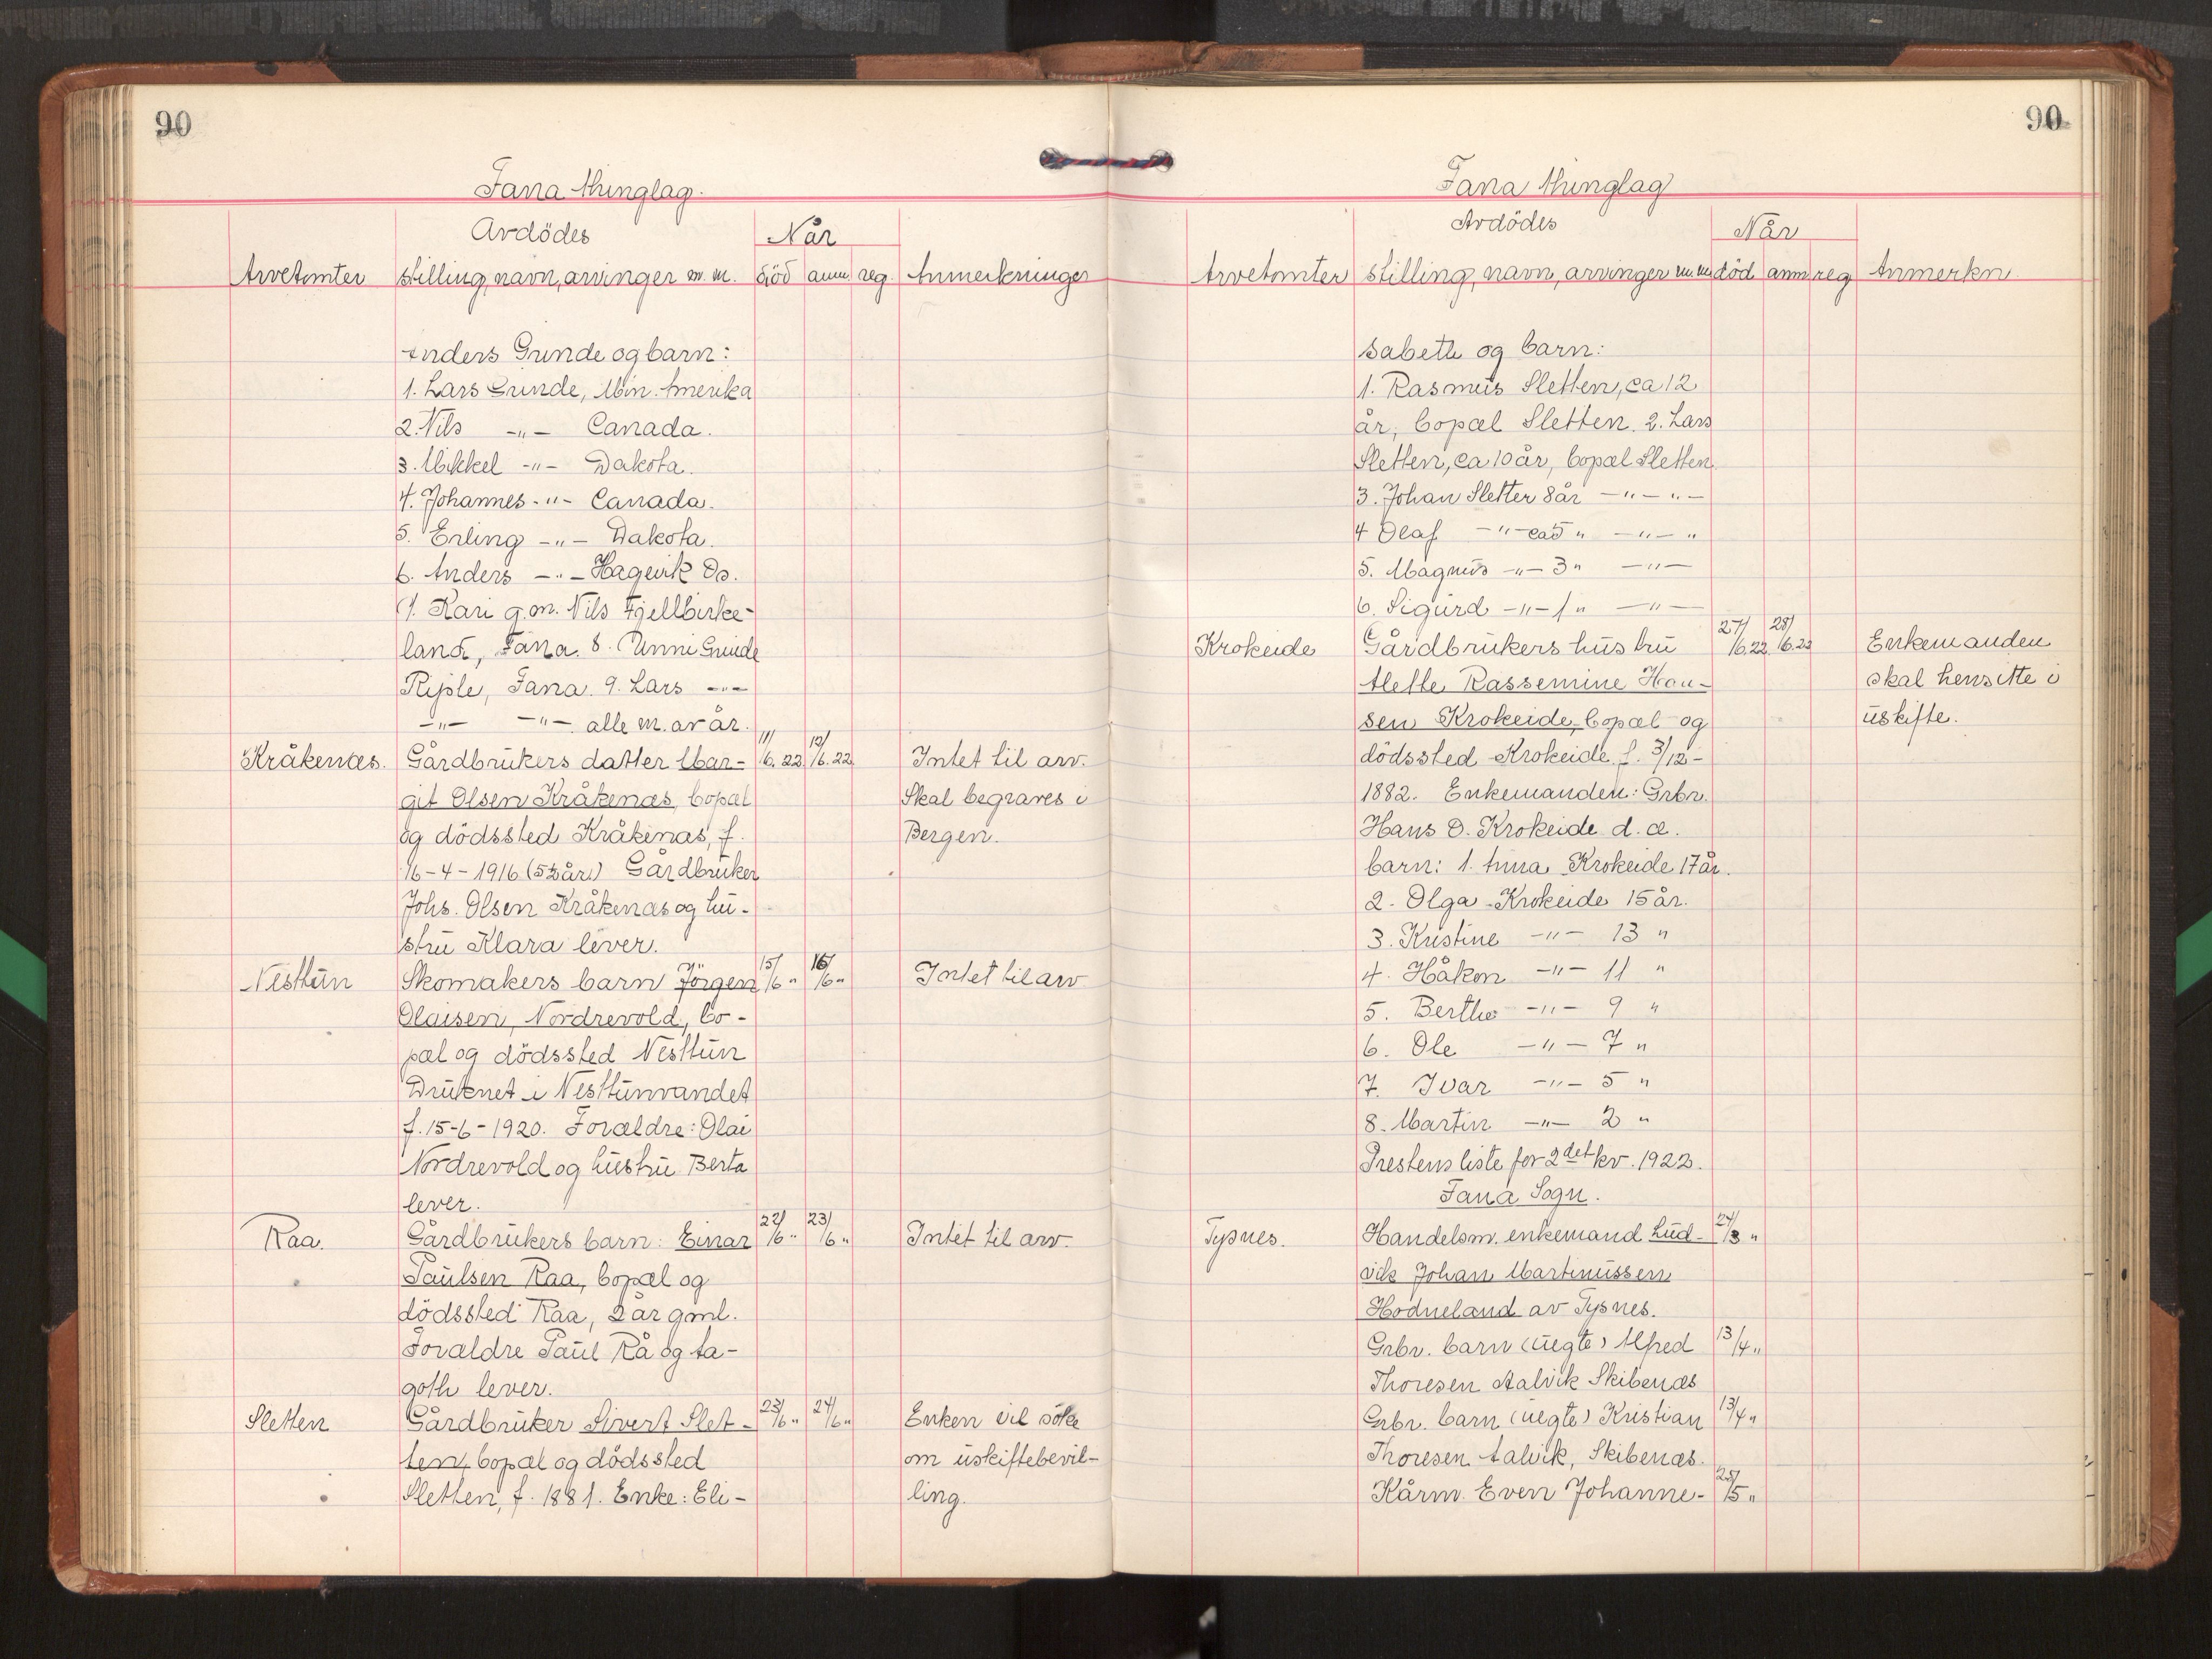 90
Fana thinglag.
Avdödes
Når
Arvetomter stilling, navn, arvinger m.m. död anm. reg. Anmerkninger
Anders Grinde og barn:
1. Lars Grinde, Min. Amerika
2. Nils -"- Canada.
3. Mikkel -"- Dakota.
4. Johannes -"- Canada.
5. Erling -"- Dakota.
6. Anders -"- Hagevik Os.
7. Kari g.m. Nils Fjellbirke-
land, Fana. 8. Unni Grinde
Riple, Fana. 9. Lars -"-
-"- -"- alle m. av år.
Kråkenæs. Gårdbrukers datter Mar- 11/6.22 12/6.22 Intet til arv.
git Olsen Kråkenæs, bopæl Skal begraves i
og dödssted Kråkenæs, f. Bergen.
16-4-1916 (5½ år) Gårdbruker
Johs. Olsen Kråkenæs og hu-
stru Klara lever.
Nesttun Skomakers barn Jörgen 15/6 " 16/6 " Intet til arv
Olaisen Nordrevold, bo-
pæl og dödssted Nesttun
Druknet i Nesttunvandet
f. 15-6-1920. Forældre: Olai
Nordrevold og hustru Berta
lever.
Raa. Gårdbrukers barn: Einar 22/6 " 23/6 " Intet til arv.
Paulsen Raa, bopæl og
dödssted Raa, 2 år gml.
Forældre Paul Rå og Aa-
goth lever.
Sletten Gårdbruker Sivert Slet- 23/6 " 24/6 " Enken vil söke
ten, bopæl og dödssted om uskiftebevil-
Sletten, f. 1881. Enke: Eli- ling.
90
Fana thinglag
Avdödes
Når
Arvetomter stilling, navn, arvinger m.m. död anm reg Anmerkn.
sabeth og barn:
1. Rasmus Sletten, ca 12
år, bopæl Sletten. 2. Lars
Sletten, ca 10 år, bopæl Sletten
3. Johan Sletten 8 år -"- "-
4 Olaf -"- ca 5 " -"- "
5. Magnus -"- 3 " -"-
6. Sigurd -"- 1 " -"-
Krokeide Gårdbrukers hustru 27/6.22 28/6.22 Enkemanden
Alette Rassemine Han- skal hensitte i
sen Krokeide, bopæl og uskifte.
dödssted Krokeide f. 3/12-
1882. Enkemanden: Grbr.
Hans O. Krokeide d. æ.
barn: 1. Anna Krokeide 17 år.
2. Olga Krokeide 15 år.
3. Kristine -"- 13 "
4. Håkon -"- 11 "
5. Berthe -"- 9 "
6. Ole -"- 7 "
7. Ivar -"- 5 "
8. Martin -"- 2 "
Prestens liste for 2det kv. 1922.
Fana Sogn.
Tysnes. Handelsm. enkemand Lud- 24/3 "
vik Johan Martinussen
Hodneland av Tysnes.
Grbr. barn (uegte) Alfred 13/4 "
Thoresen Aalvik Skibenæs
Grbr. barn (uegte) Kristian 13/4 "
Thoresen Aalvik, Skibenæs.
Kårm. Even Johanne- 25/5 "